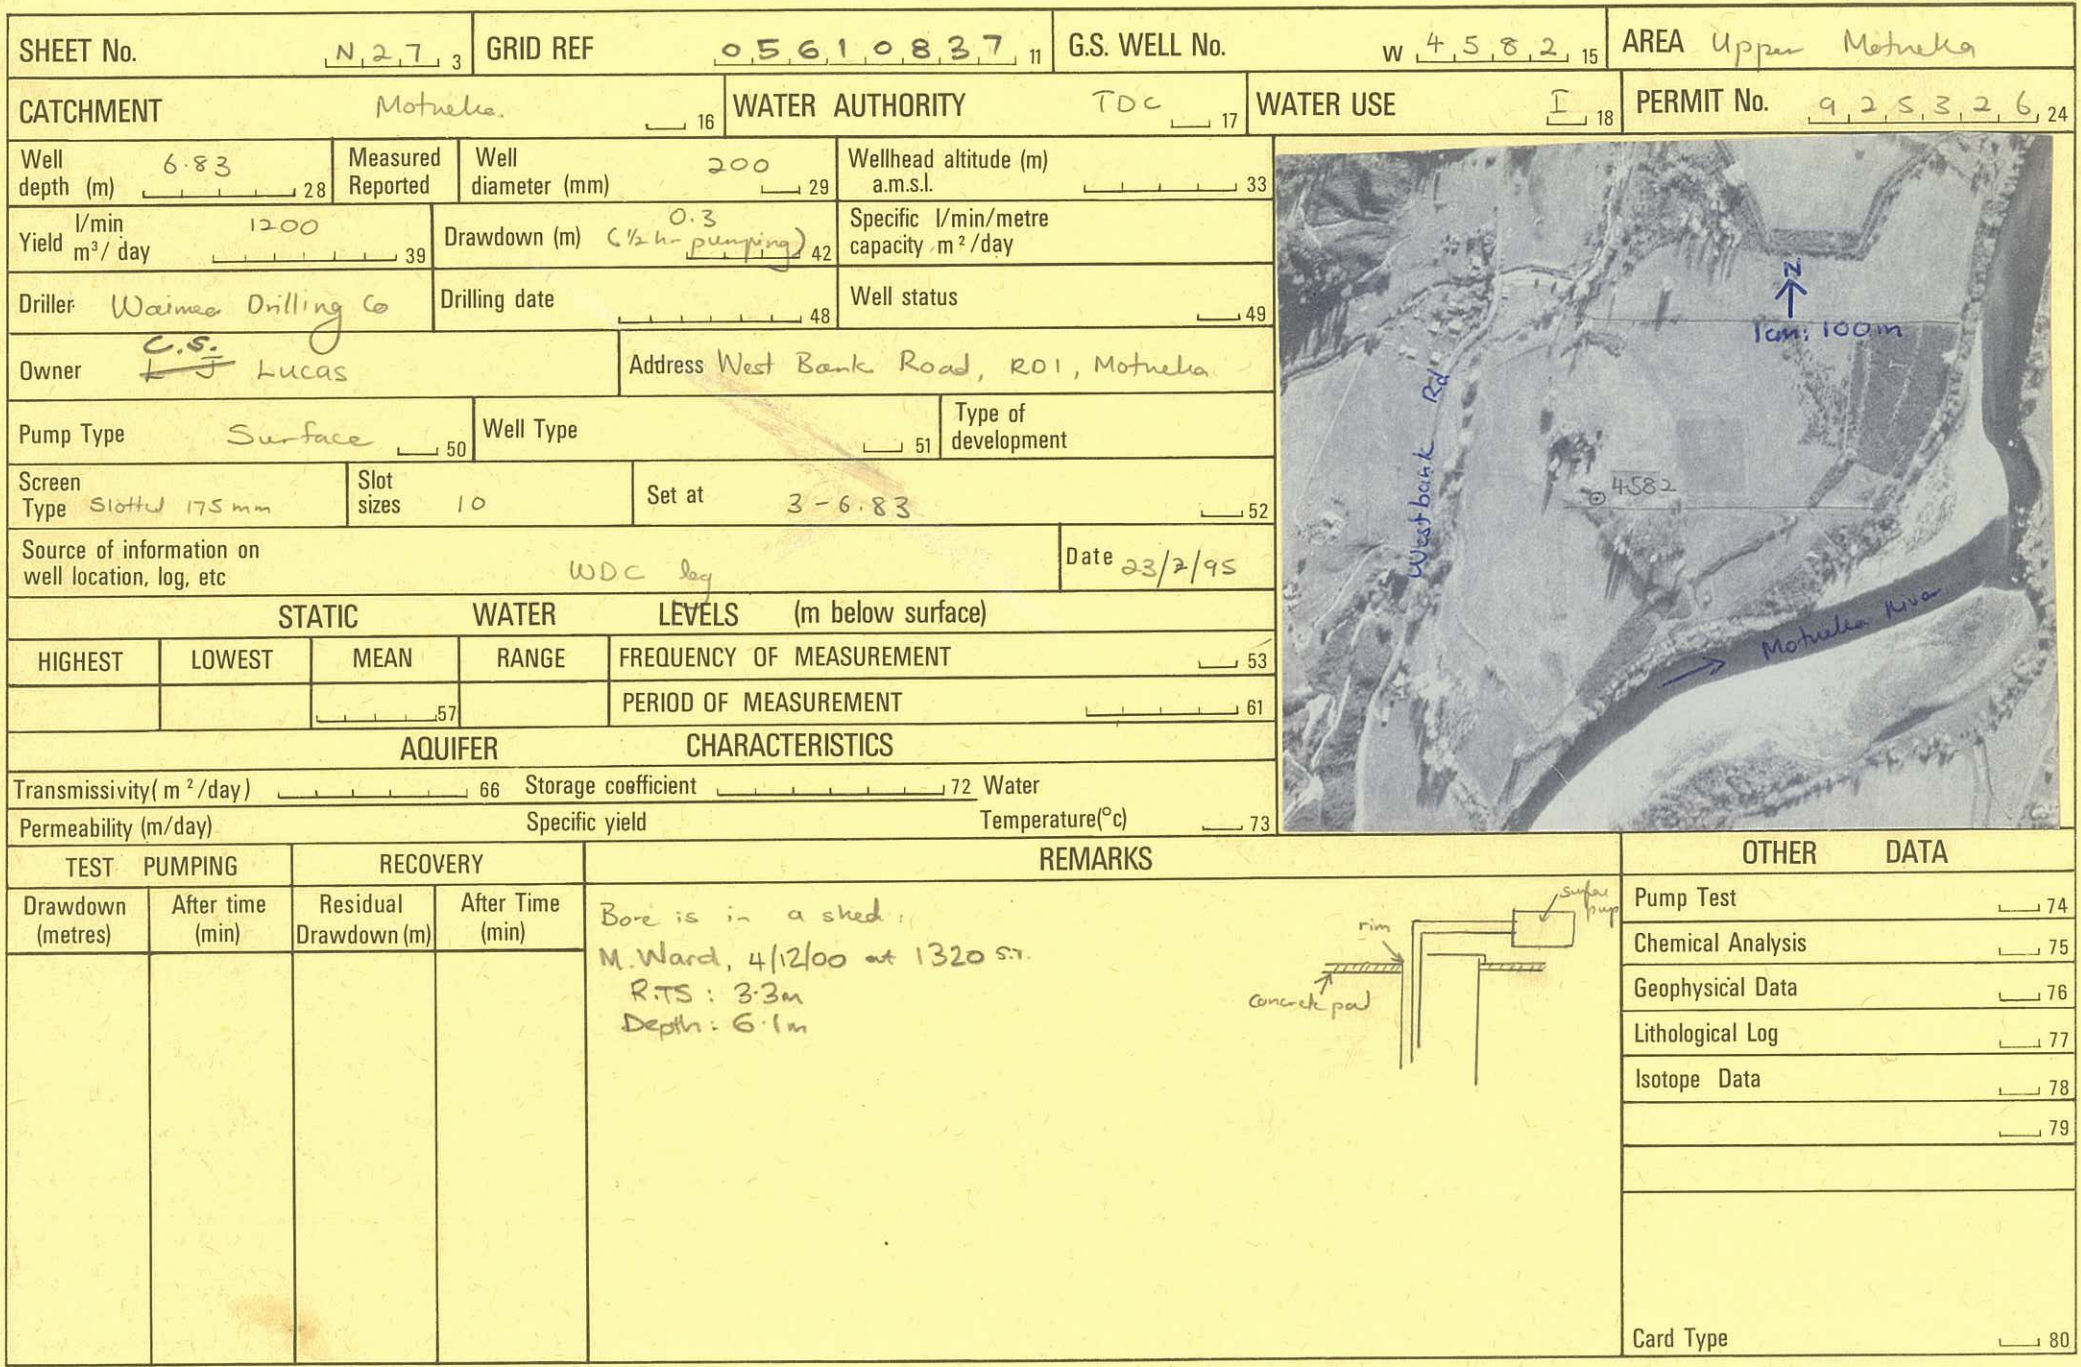 SHEET No. N27 3 GRID REF 05610837 11 G.S. WELL No. W 4582 15 AREA Upper Motueka
CATCHMENT Motueka. 16 WATER AUTHORITY TDC 17 WATER USE I 18 PERMIT No. 925326 24
Well depth (m) 6.83 28 Measured Reported Well diameter (mm) 200 29 Wellhead altitude (m) a.m.s.l. 33
Yield l/min m³/ day 1200 39 Drawdown (m) 0.3 (½ hr pumping) 42 Specific capacity l/min/metre m²/day
Driller Waimea Drilling Co Drilling date 48 Well status 49
Owner L J C.S. Lucas Address West Bank Road, RD1, Motueka
Pump Type Surface 50 Well Type 51 Type of development
Screen Type Slotted 175 mm Slot sizes 10 Set at 3 - 6.83 52
Source of information on well location, log, etc WDC log Date 23/2/95
STATIC WATER LEVELS (m below surface)
HIGHEST LOWEST MEAN RANGE FREQUENCY OF MEASUREMENT 53
57 PERIOD OF MEASUREMENT 61
AQUIFER CHARACTERISTICS
Transmissivity( m²/day) 66 Storage coefficient 72 Water
Permeability (m/day) Specific yield Temperature(°c) 73
N
1cm: 100m
Westbank Rd
4582
Motueka River
TEST PUMPING RECOVERY REMARKS OTHER DATA
Drawdown (metres) After time (min) Residual Drawdown (m) After Time (min)
Bore is in a shed:
M. Ward, 4/12/00 at 1320 S.T.
R.TS : 3.3m
Depth: 6.1m
surface pump
rim
concrete pad
Pump Test 74
Chemical Analysis 75
Geophysical Data 76
Lithological Log 77
Isotope Data 78
79
Card Type 80